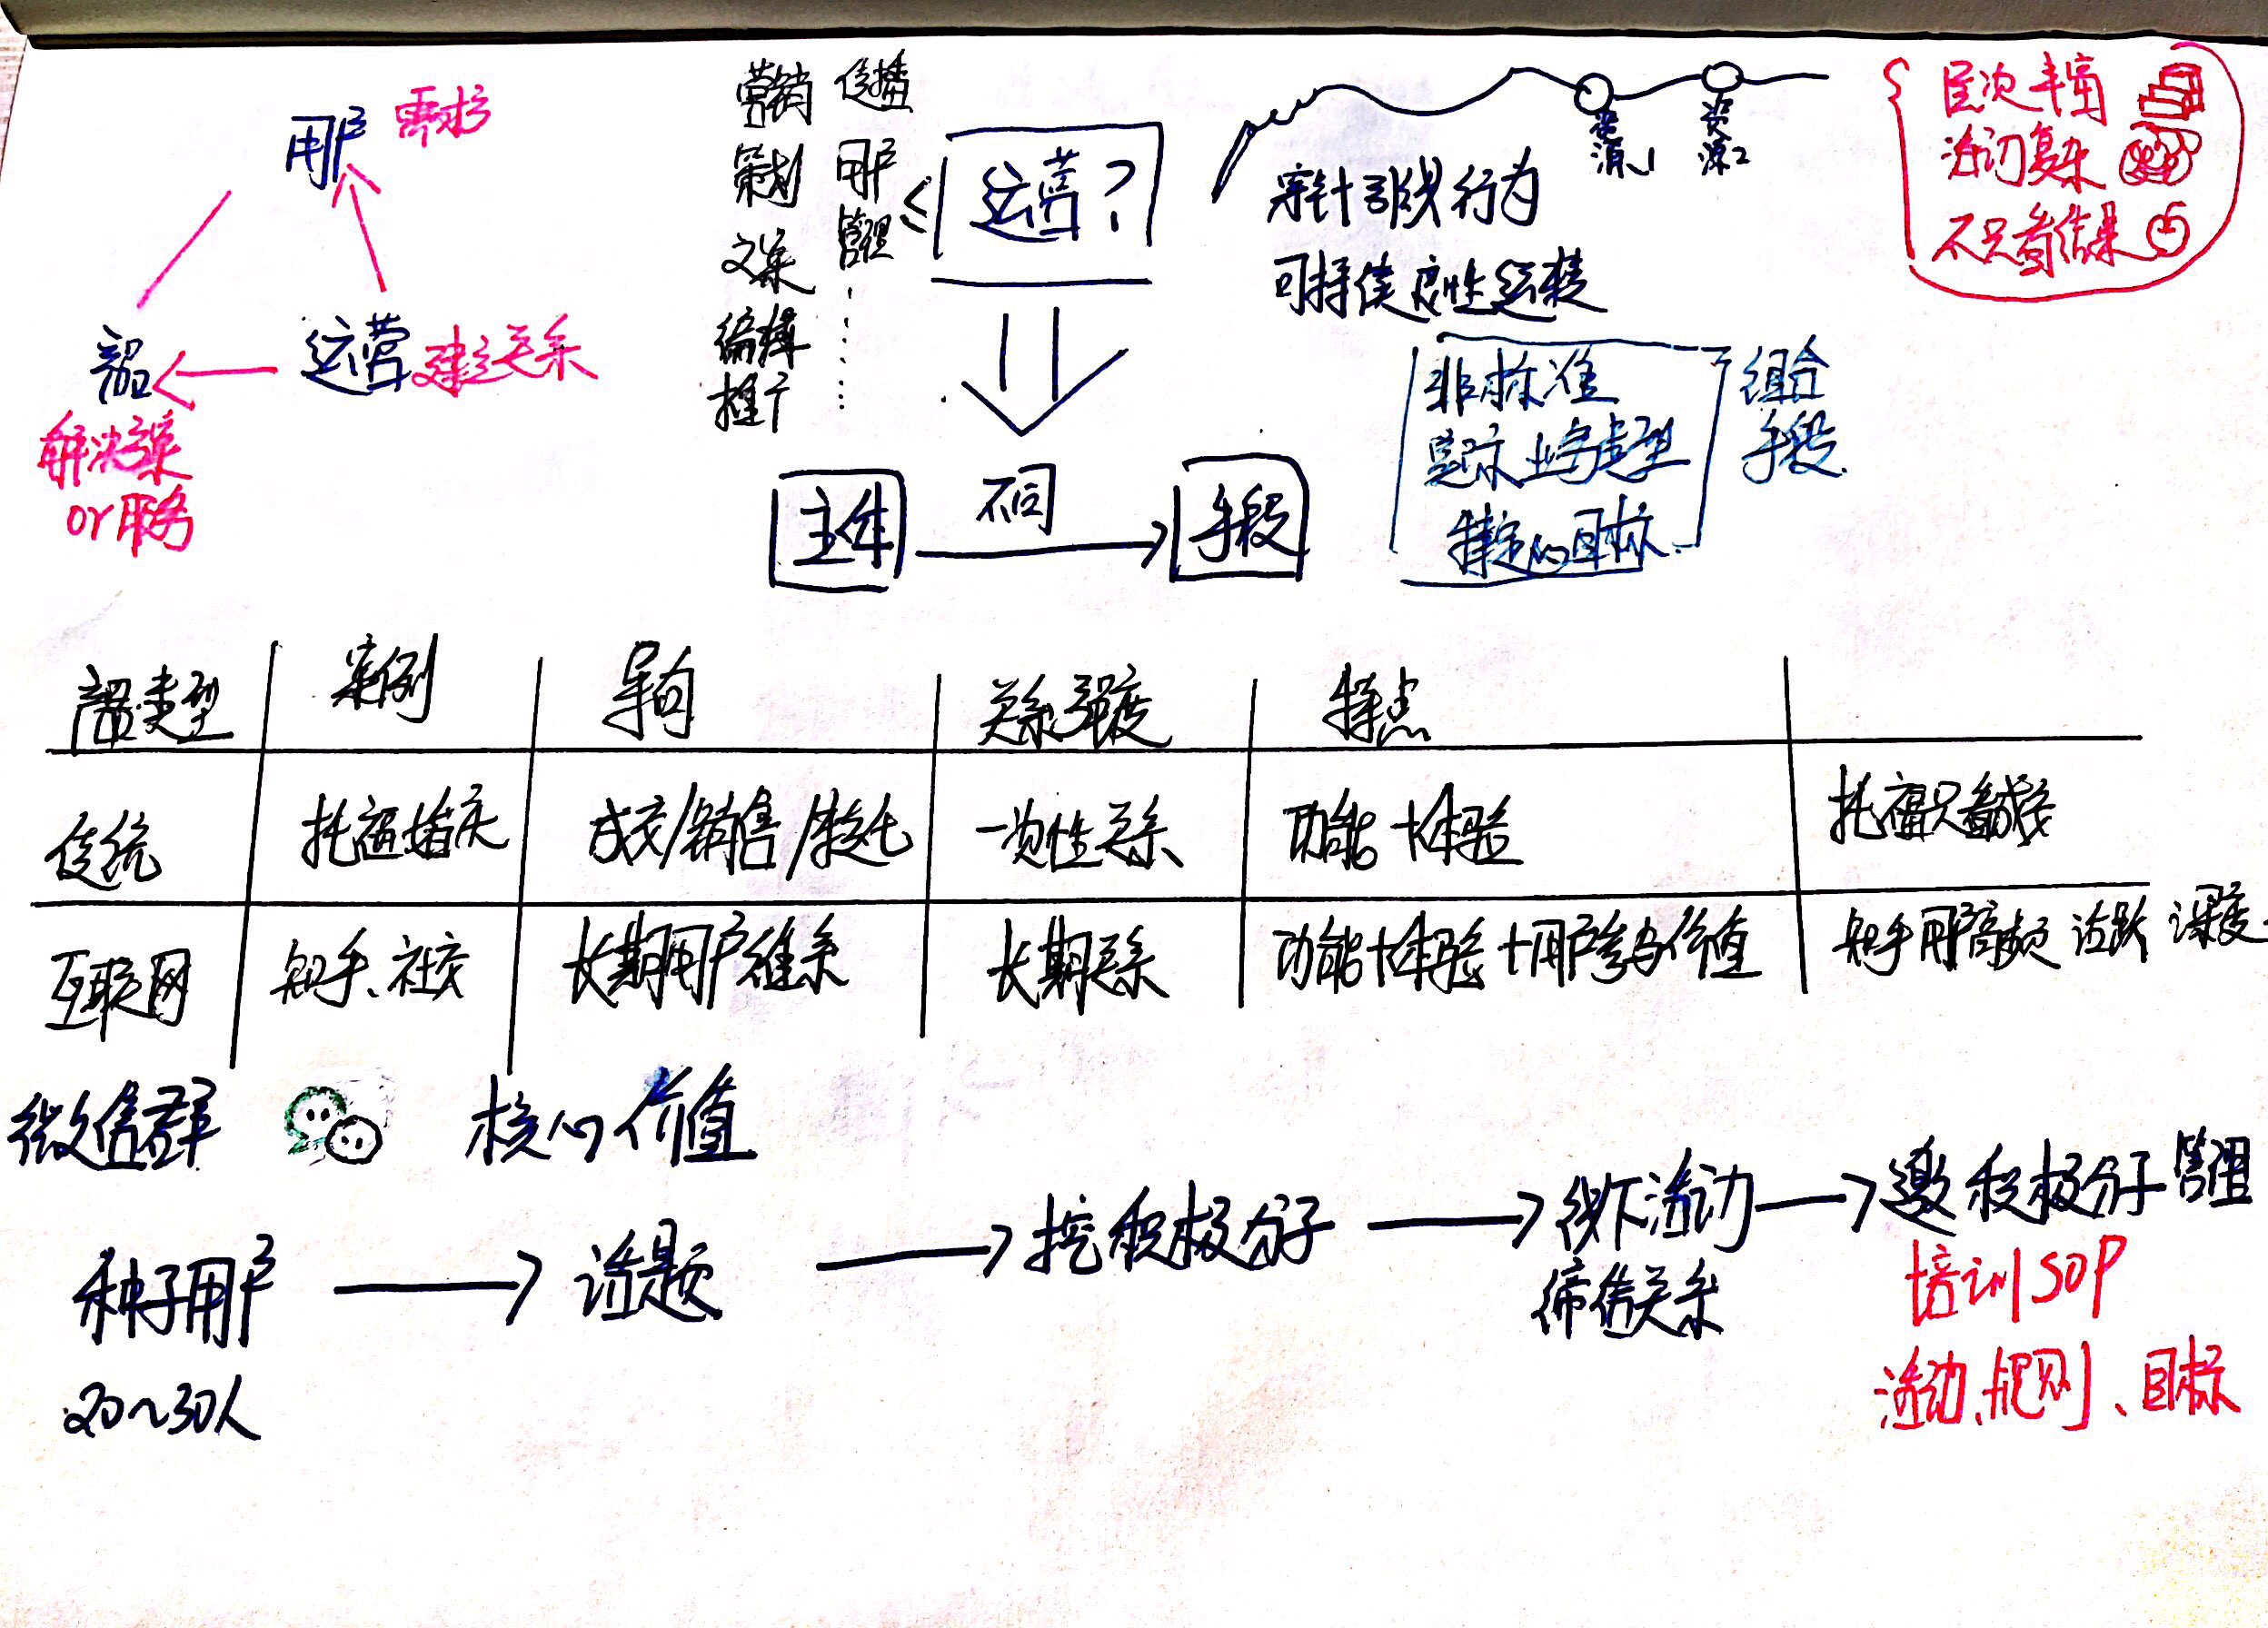 用户 需求
产品 运营 建立关系
解决方案
or服务
营销 传播
策划 用户
文案 管理
编辑
推广
运营?
资源1
资源2
穿针引线行为
可持续良性运转
层次丰富
不只看结果
非标准
实际业务类型
特定的目标
组合
手段
主体 不同 手段
产品类型 案例 导向 关系强度 特点
传统 托福 成交/销售/转化 一次性关系 功能+体验 托福只看成绩
互联网 知乎、社交 长期用户维系 长期关系 功能+体验+用户参与价值 知乎用户高频 活跃 深度
微信群 核心价值
种子用户 话题 挖积极分子 线下活动 邀积极分子管理
20~30人
缔结关系
培训SOP
活动、规则、目标